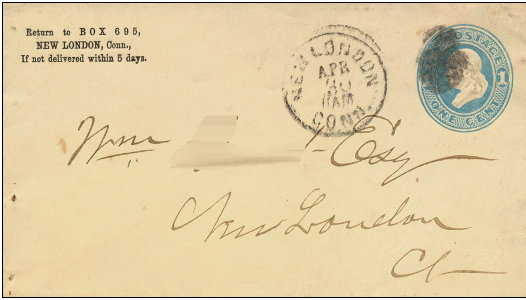 Return to BOX 695,
NEW LONDON, Conn.,
If not delivered within 5 days.
NEW LONDON
APR
30
11AM
CONN.
U.S. POSTAGE
1
ONE CENT
Wm Esq
New London
Ct